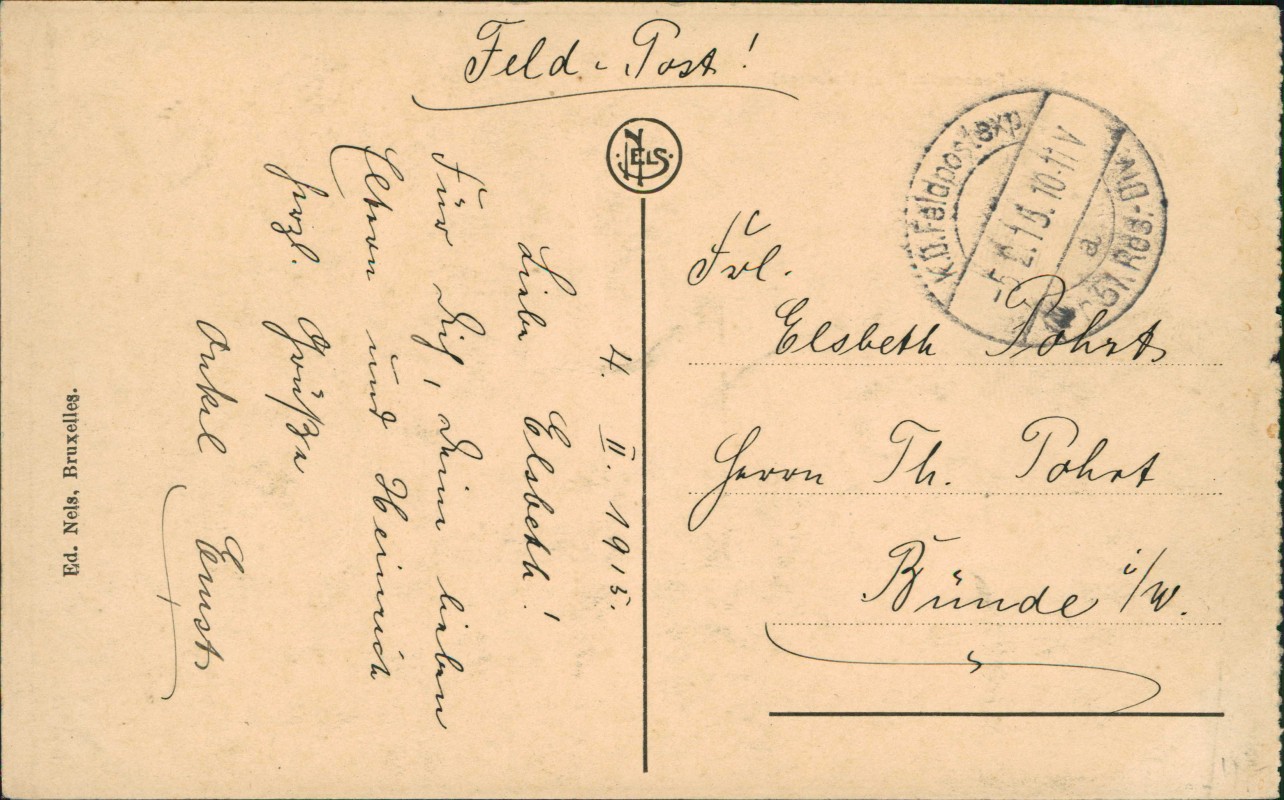 Feld-Post!
NELS.
K.D. Feldpostexp.
-5.2.15. 10-11 V
a
51. Res.-Div.
4. II. 1915.
Liebe Elsbeth!
Für Dich, Deine lieben
Eltern und Heinrich
herzl. Grüße
Onkel Ernst
Frl.
Elsbeth Pohrt
Herrn Th. Pohrt
Bünde i/W.
Ed. Nels, Bruxelles.